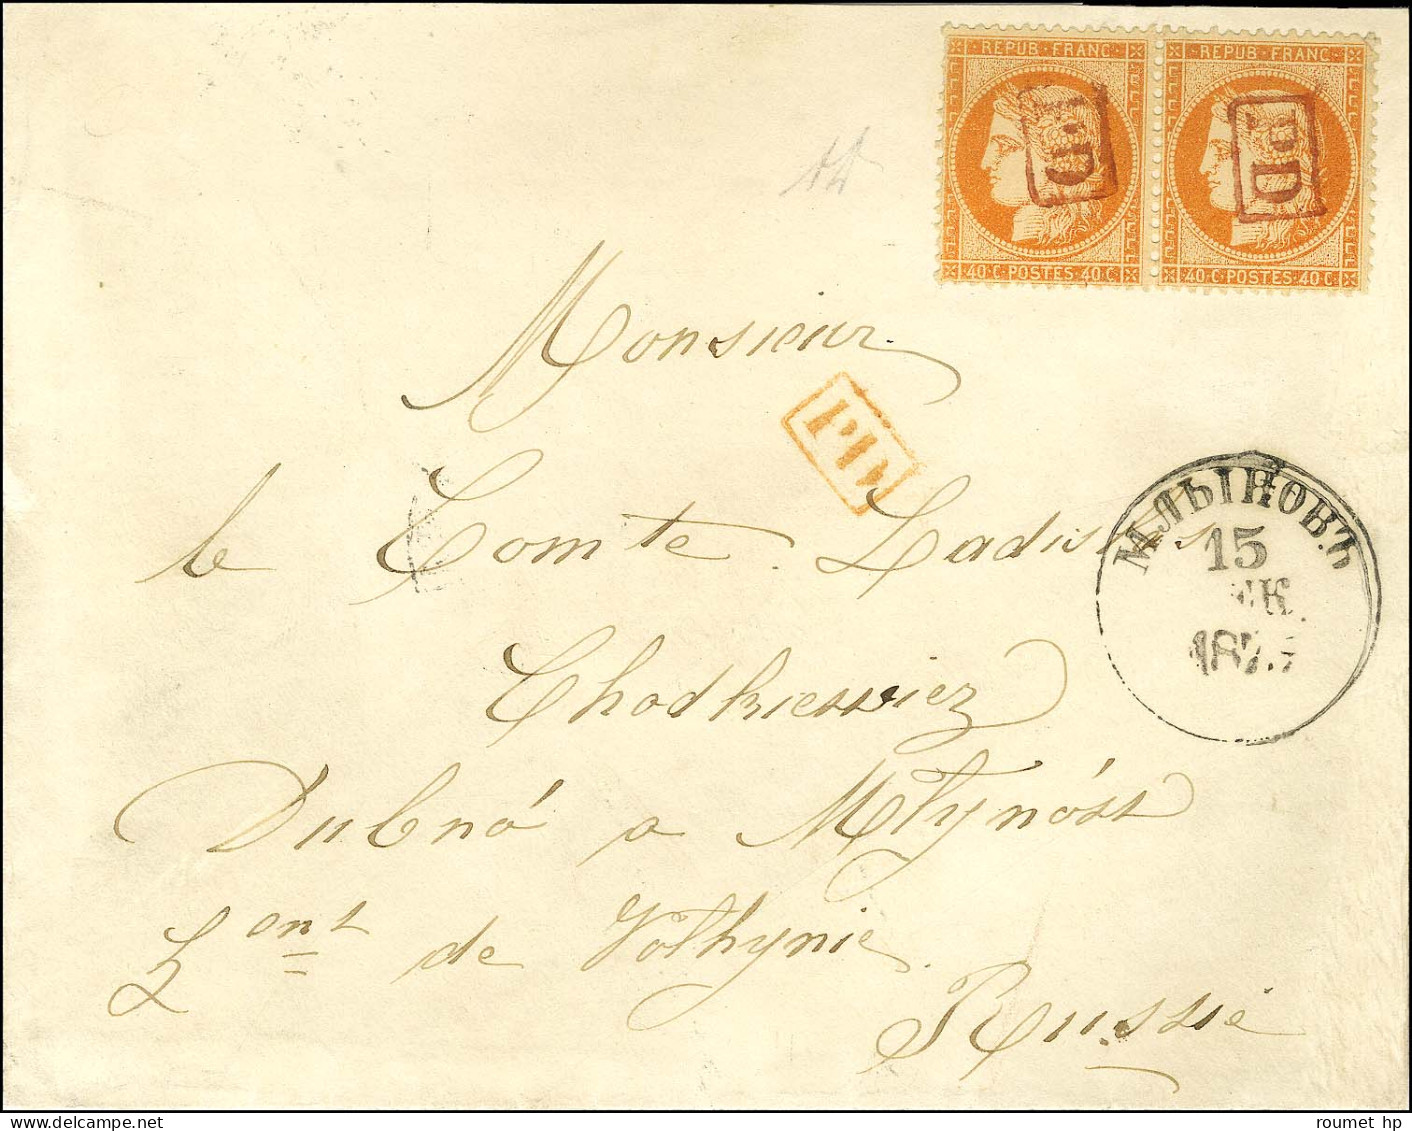 REPUB·FRANC
REPUB·FRANC
PD
PD
40·C·POSTES·40·C
40·C·POSTES·40·C
Monsieur
PD
le Comte Ladislas
МЛЫНОВЪ
15
ЕК.
187
Chodkiewicz
Dubnó a Młynóst
de Volhynie.
Russie
roumet hp